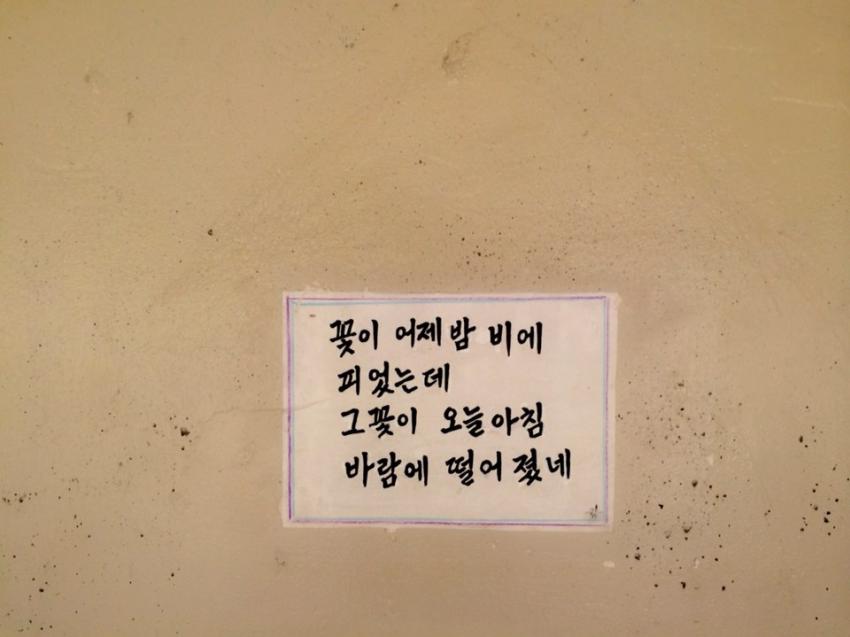 꽃이 어제밤 비에
피었는데
그꽃이 오늘아침
바람에 떨어졌네